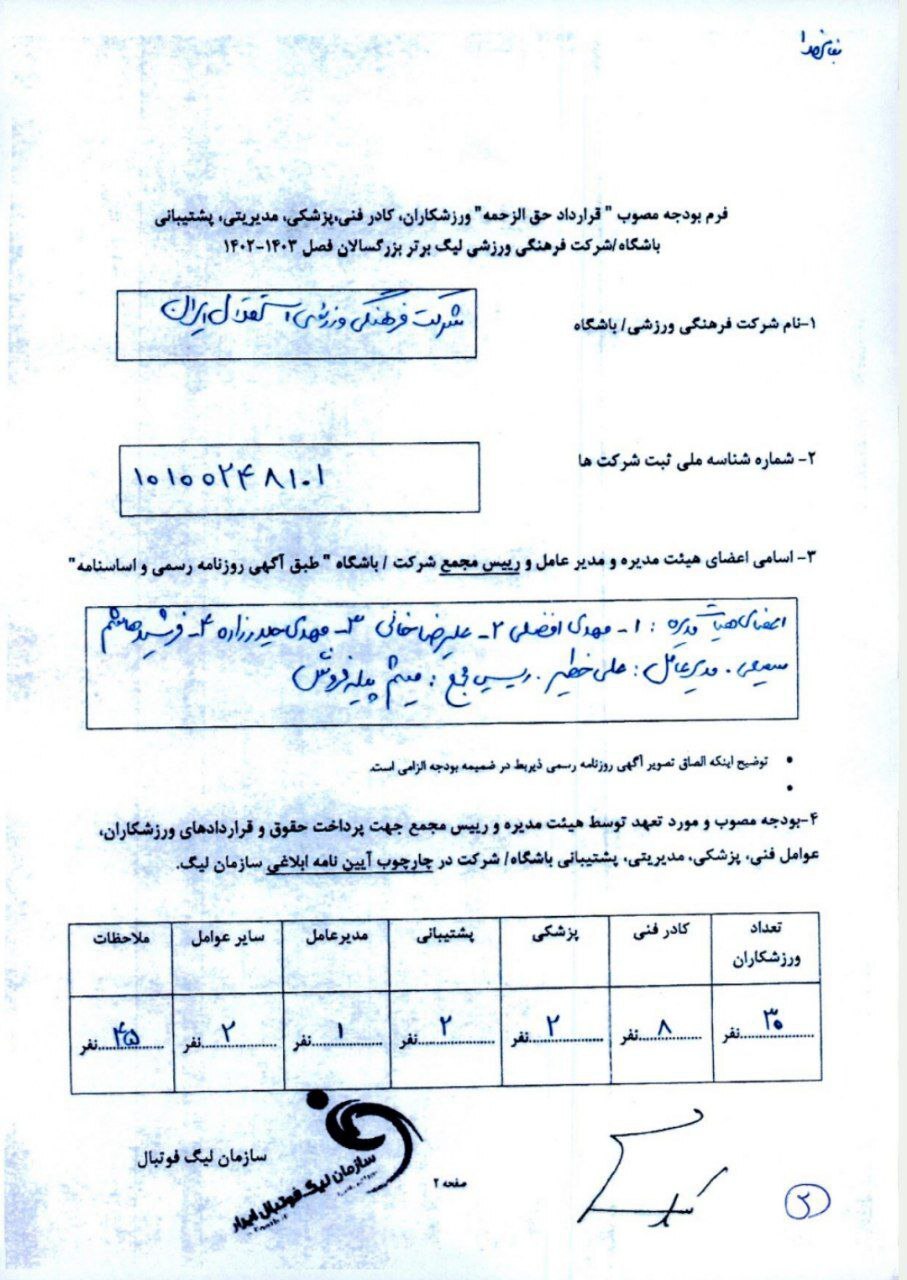 بنام خدا
فرم بودجه مصوب " قرارداد حق الزحمه" ورزشکاران، کادر فنی،پزشکی، مدیریتی، پشتیبانی
باشگاه/شرکت فرهنگی ورزشی لیگ برتر بزرگسالان فصل ۱۴۰۳-۱۴۰۲
۱-نام شرکت فرهنگی ورزشی/ باشگاه
شرکت فرهنگی ورزشی استقلال ایران
۲- شماره شناسه ملی ثبت شرکت ها
۱۰۱۰۰۲۴۸۱۰۱
۳- اسامی اعضای هیئت مدیره و مدیر عامل و رییس مجمع شرکت / باشگاه " طبق آگهی روزنامه رسمی و اساسنامه"
اعضای هیات مدیره : ۱- مهدی افضلی ۲- علیرضا خانی ۳- مهدی حیدرزاده ۴- فرشید
سمیعی . مدیرعامل : علی خطیر . رییس مجمع : میثم پیله فروش
• توضیح اینکه الصاق تصویر آگهی روزنامه رسمی ذیربط در ضمیمه بودجه الزامی است.
•
۴-بودجه مصوب و مورد تعهد توسط هیئت مدیره و رییس مجمع جهت پرداخت حقوق و قراردادهای ورزشکاران،
عوامل فنی، پزشکی، مدیریتی، پشتیبانی باشگاه/ شرکت در چارچوب آیین نامه ابلاغی سازمان لیگ.
تعداد ورزشکاران کادر فنی پزشکی پشتیبانی مدیرعامل سایر عوامل ملاحظات
۳۰ نفر ۸ نفر ۲ نفر ۲ نفر ۱ نفر ۲ نفر ۴۵ نفر
سازمان لیگ فوتبال
سازمان لیگ فوتبال ایران
صفحه ۲
۲